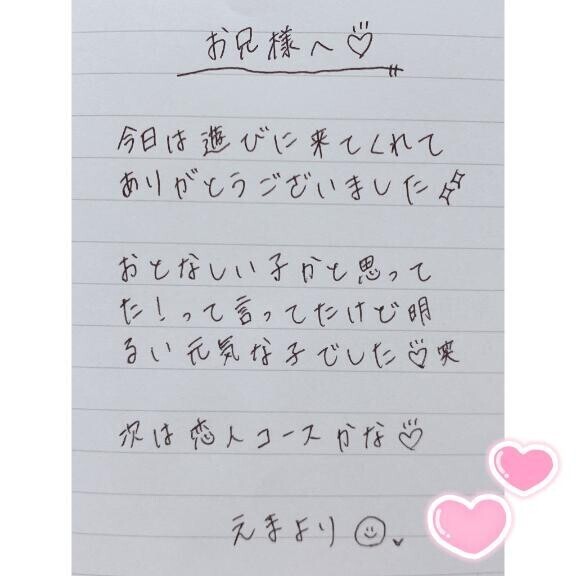 お兄様へ♡
今日は遊びに来てくれて
ありがとうございました
おとなしい子かと思って
た!って言ってたけど明
るい元気な子でした♡笑
次は恋人コースかな♡
えまより